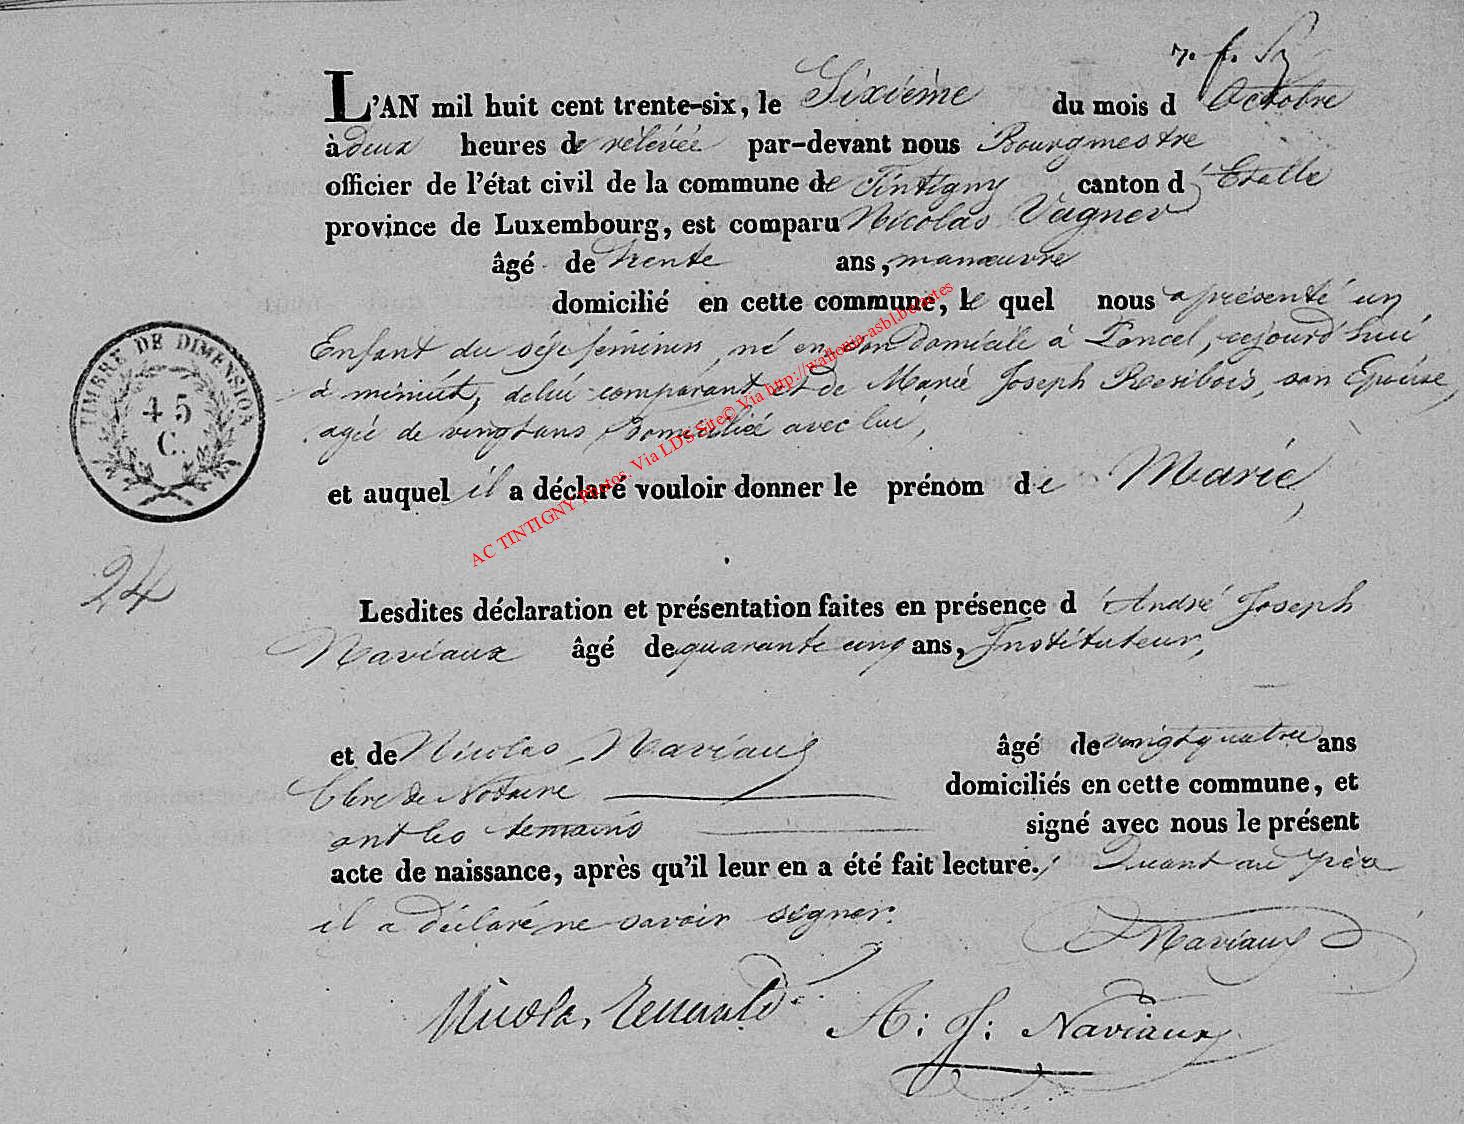 L'AN mil huit cent trente-six, le Sixième du mois d'Octobre
à deux heures de rélévée par-devant nous Bourgmestre
officier de l'état civil de la commune de Tintigny canton d'Etalle
province de Luxembourg, est comparu Nicolas Vagner
âgé de trente ans, manœuvre
domicilié en cette commune, le quel nous a présenté un
Enfant du séxe féminin, né en son domicile à Poncel, cejourd'hui
à minuit, de lui comparant et de Marie Joseph Rosibois, son Epouse,
agée de vingt ans, Domiciliée avec lui,
et auquel il a déclaré vouloir donner le prénom de Marie,
TIMBRE DE DIMENSION
45
C.
24
Lesdites déclaration et présentation faites en présence d'André Joseph
Naviaux âgé de quarante cinq ans, Instituteur,
et de Nicolas Naviaux âgé de vingt quatre ans
Clerc de Notaire domiciliés en cette commune, et
ont les temoins signé avec nous le présent
acte de naissance, après qu'il leur en a été fait lecture. Quant au père
il a déclaré ne savoir signer.
Naviaux
Nicolas A: J: Naviaux
AC TINTIGNY Photos. Via LDS Site© Via http://wallonia-asbl.be/sites